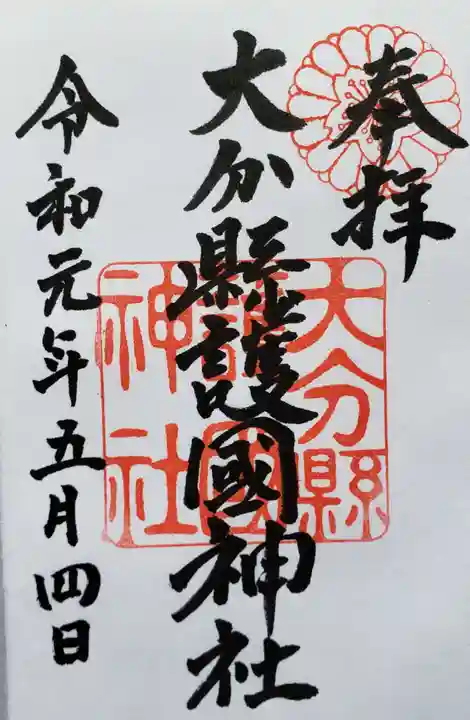 奉拝
大分縣護國神社
大分縣
護國
神社
令和元年五月四日